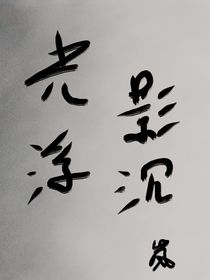 光影
浮沉